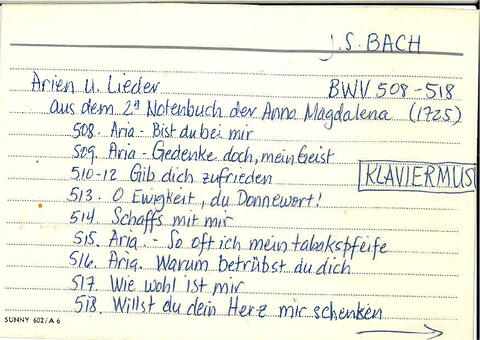 J.S. BACH
Arien u. Lieder BWV 508-518
aus dem 2n Notenbuch der Anna Magdalena (1725)
508. Aria - Bist du bei mir
509. Aria - Gedenke doch, mein Geist
510-12 Gib dich zufrieden
KLAVIERMUS
513. O Ewigkeit, du Donnewort!
514. Schaffs mit mir
515. Aria. - So oft ich mein tabakspfeife
516. Aria. Warum betrübst du dich
517. Wie wohl ist mir
518. Willst du dein Herz mir schenken
SUNNY 602/A 6